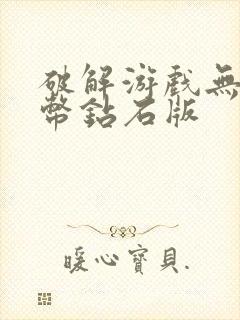 破解游戲無
幣鉆石版
暖心寶貝.